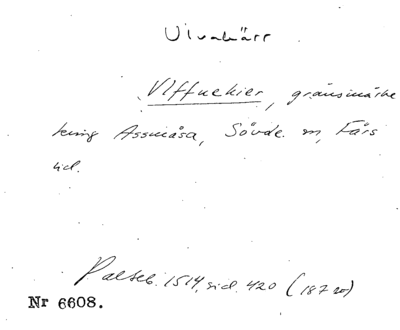 Ulvakärr
Ulffuekier, gränsmärke
kring Assmåsa, Sövde. sn, Färs
hd.
Palteb. 1514, sid. 420 (187 20)
Nr 6608.